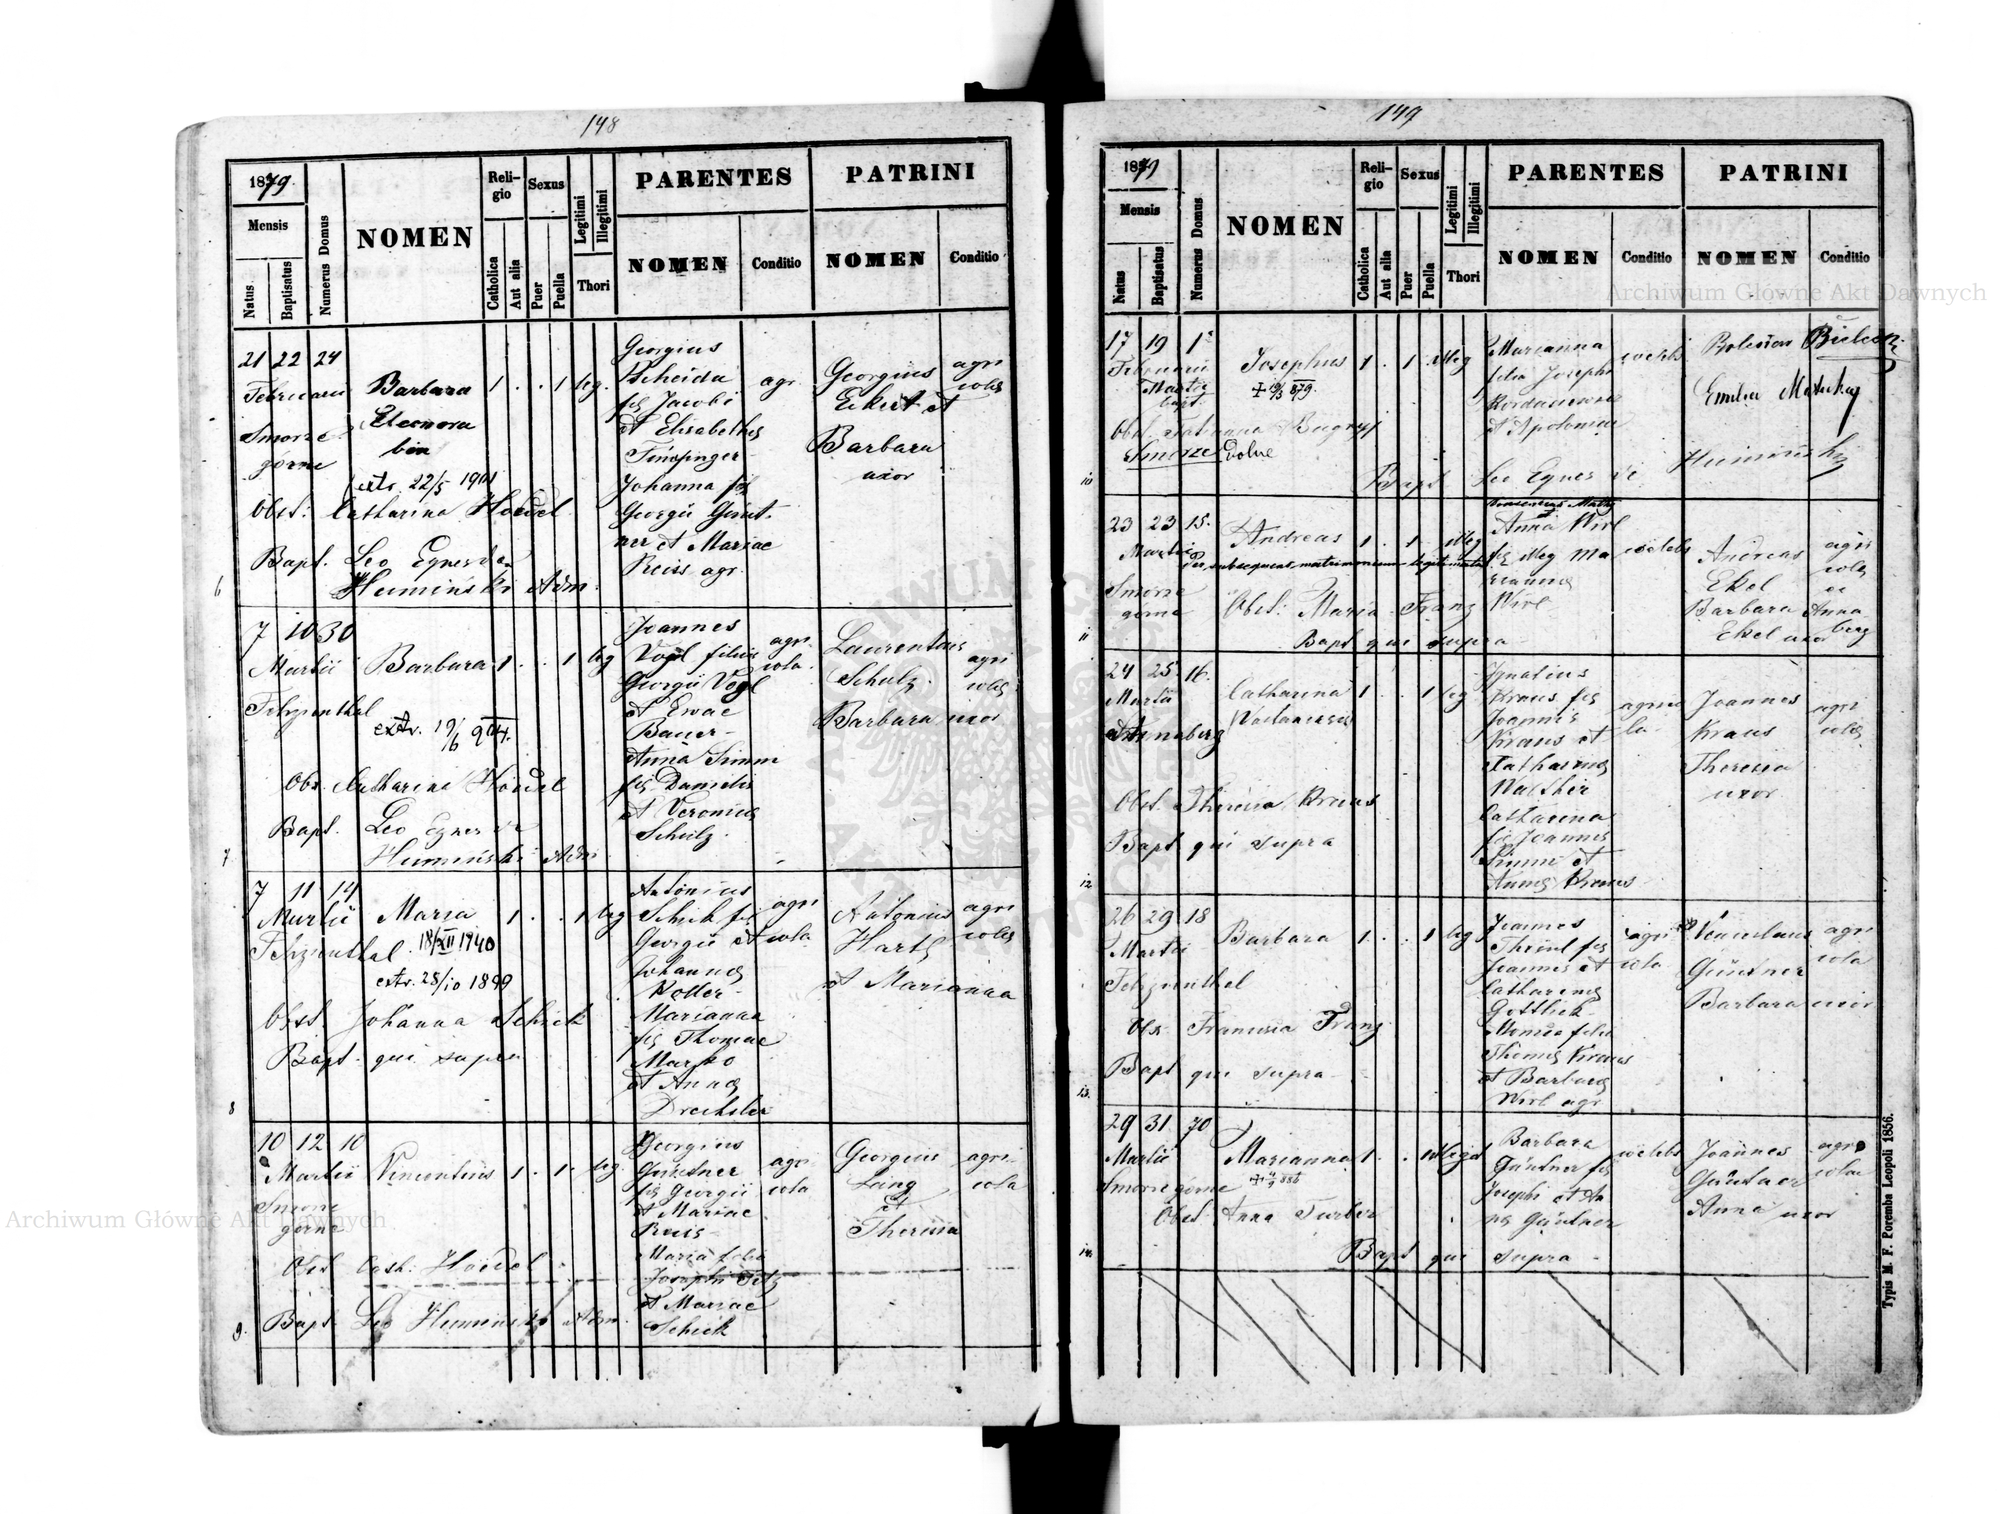 148
1879.
Mensis
Natus
Baptisatus
Numerus Domus
NOMEN
Reli-
gio
Catholica
Aut alia
Sexus
Puer
Puella
Legitimi
Illegitimi
Thori
PARENTES
NOMEN
Conditio
PATRINI
NOMEN
Conditio
21 22 24
Februarii
Smorze
górne
Barbara
Eleonora
bin
extr. 22/5 1901
1 . . 1 leg.
Georgius
Scheida
fil Jacobi
et Elisabethae
Johanna fil
Georgii Günt-
ner et Mariae
Reiss agr.
agr.
Georgius
Eckert et
Barbara
uxor
agri
colae
Obst: Catharina Hoidel
Bapt. Leo Egnes de
Humiński Adm.
6
7 10 30
Martii
Felizienthal
Barbara
extr. 19/6
1 . . 1 leg
Joannes
Vogl filius
Georgii Vogl
et Evae
Bauer -
Anna Simm
fil Danielis
et Veronicae
Schulz.
agri-
cola
Laurentius
Schulz.
Barbara uxor
agri
colae
Obs. Catharina Hoidel
Bapt. Leo Egnes de
Humiński Adm
7
7 11 14
Martii
Felizienthal
Maria
18/XII 1940
extr. 28/10 1899
1 . . 1 leg
Antonius
Schick fil
Georgii et
Johannae
Kotter -
Marianna
fil Thomae
Marko
et Annae
Drechsler
agri
cola
Antonius
Hartl
et Marianna
agri
colae
Obst. Johanna Schick
Bapt. qui supra
8
10 12 10
Martii
Smorze
górne
Vincentius
1 . 1 . leg.
Georgius
Guntner
fil Georgii
et Mariae
Reiss -
Maria filia
Josephi Titz
et Mariae
Schick
agri-
cola
Georgius
Lang
et
Theresia
agri-
cola
Obst Cath: Hoidel
Bapt. Leo Humiński Adm.
9.
149
1879
Mensis
Natus
Baptisatus
Numerus Domus
NOMEN
Reli-
gio
Catholica
Aut alia
Sexus
Puer
Puella
Legitimi
Illegitimi
Thori
PARENTES
NOMEN
Conditio
PATRINI
NOMEN
Conditio
17 19 1
Februarii
Martii
bapt.
Josephus
1 . 1 . illeg
Marianna
filia Josephi
et Apolonia
coelebs
Emilia
Obst. Tatianna
Smorze Dolne
Bapt Leo Egnes de Humiński
10
23 23 15.
Martii
Smorze
górne
Andreas
per subsequens matrimonium legitimatus
1 . 1 . illeg
Anna Wirl
fil illeg Ma
riannae
Wirl
coelebs
Andreas
Ekel
Barbara
Ekel uxor
agri
colae
ex
Anna
berg
Obst: Maria Franz
Bapt qui supra
11
24 25 16.
Martii
Annaberg
Catharina
1 . . 1 leg
Ignatius
Kraus fil
Joannis
Kraus et
Catharinae
Walther
Catharina
fil Joannis
Simm et
Annae Kraus
agrico
la.
Joannes
Kraus
Theresia
uxor
agri
colae
Obst. Theresia Kraus
Bapt qui supra
12
26 29 18
Martii
Felizienthal
Barbara
1 . . 1 leg
Joannes
fil
Joannis et
Catharinae
Gottlieb -
Monica filia
Thomae Kraus
et Barbarae
Wirl agr
agri
cola
Venceslaus
Güntner
Barbara uxor
agri
cola
Obs. Francisca Franz
Bapt qui supra
13.
29 31 70
Martii
Smorze górne
Marianna
1 . . 1
Barbara
Güntner fil
Josephi et An
nae Güntner
coelebs
Joannes
Güntner
Anna uxor
agri
colae
Obst. Anna Turber
Bapt qui supra -
14.
Typis M. F. Poremba Leopoli 1856.
Archiwum Główne Akt Dawnych
Archiwum Główne Akt Dawnych